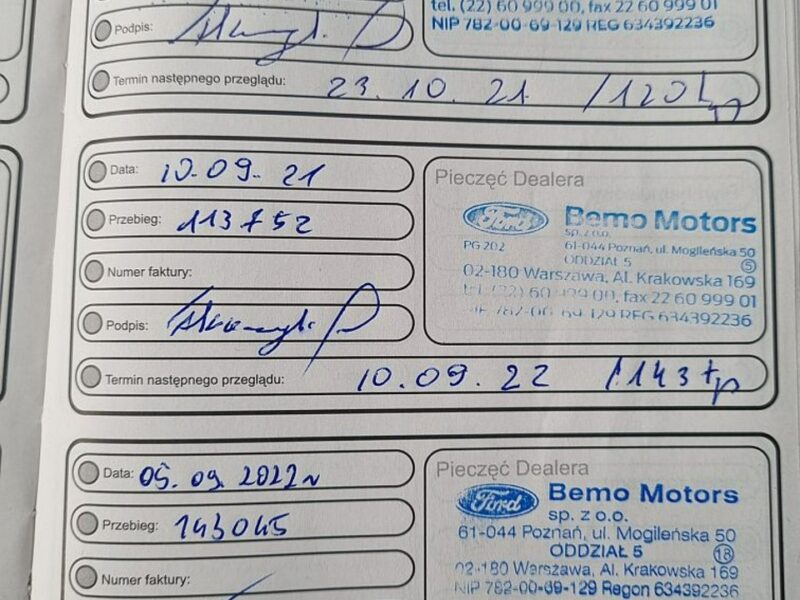 Podpis:
tel. (22) 60 999 00, fax 22 60 999 01
NIP 782-00-69-129 REG 634392236
Termin następnego przeglądu: 23.10.21 /120
Data: 10.09.21
Przebieg: 113752
Numer faktury:
Podpis:
Termin następnego przeglądu: 10.09.22 /143 tp
Pieczęć Dealera
Ford Bemo Motors
sp. z o.o.
PG 202 61-044 Poznań, ul. Mogileńska 50
ODDZIAŁ 5 5
02-180 Warszawa, Al. Krakowska 169
tel. (22) 60 999 00, fax 22 60 999 01
NIP 782-00-69-129 REG 634392236
Data: 05.09.2022r
Przebieg: 143045
Numer faktury:
Pieczęć Dealera
Ford Bemo Motors
sp. z o.o.
61-044 Poznań, ul. Mogileńska 50
ODDZIAŁ 5 18
02-180 Warszawa, Al. Krakowska 169
NIP 782-00-69-129 Regon 634392236